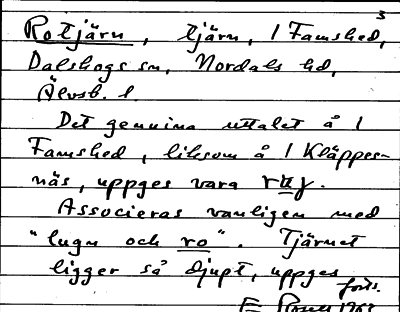 3
Rotjärn, tjärn, 1 Famshed,
Dalskogs sn, Nordals hd,
Älvsb. l.
Det genuina uttalet å 1
Famshed, liksom å 1 Kläppes-
näs, uppges vara
Associeras vanligen med
"lugn och ro". Tjärnet
ligger så djupt, uppges
forts.